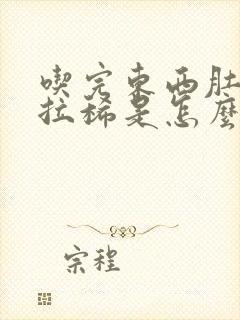 喫完東西肚
拉稀是怎麼
宗程